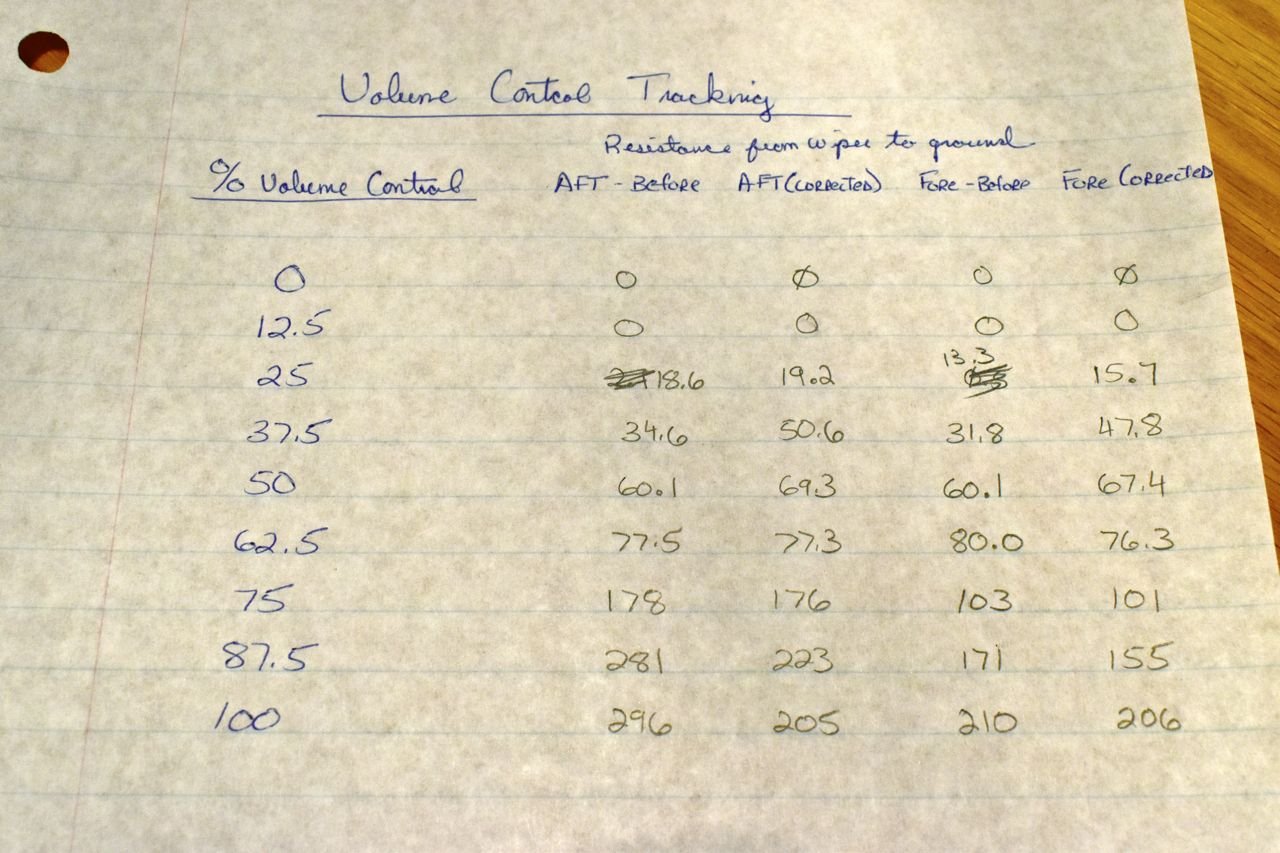 Volume Control Tracking
Resistance from wiper to ground
% Volume Control AFT - Before AFT (corrected) Fore - Before Fore Corrected
0 0 Ø 0 Ø
12.5 0 0 0 0
25 18.6 19.2 13.3 15.7
37.5 34.6 50.6 31.8 47.8
50 60.1 69.3 60.1 67.4
62.5 77.5 77.3 80.0 76.3
75 178 176 103 101
87.5 281 223 171 155
100 296 205 210 206